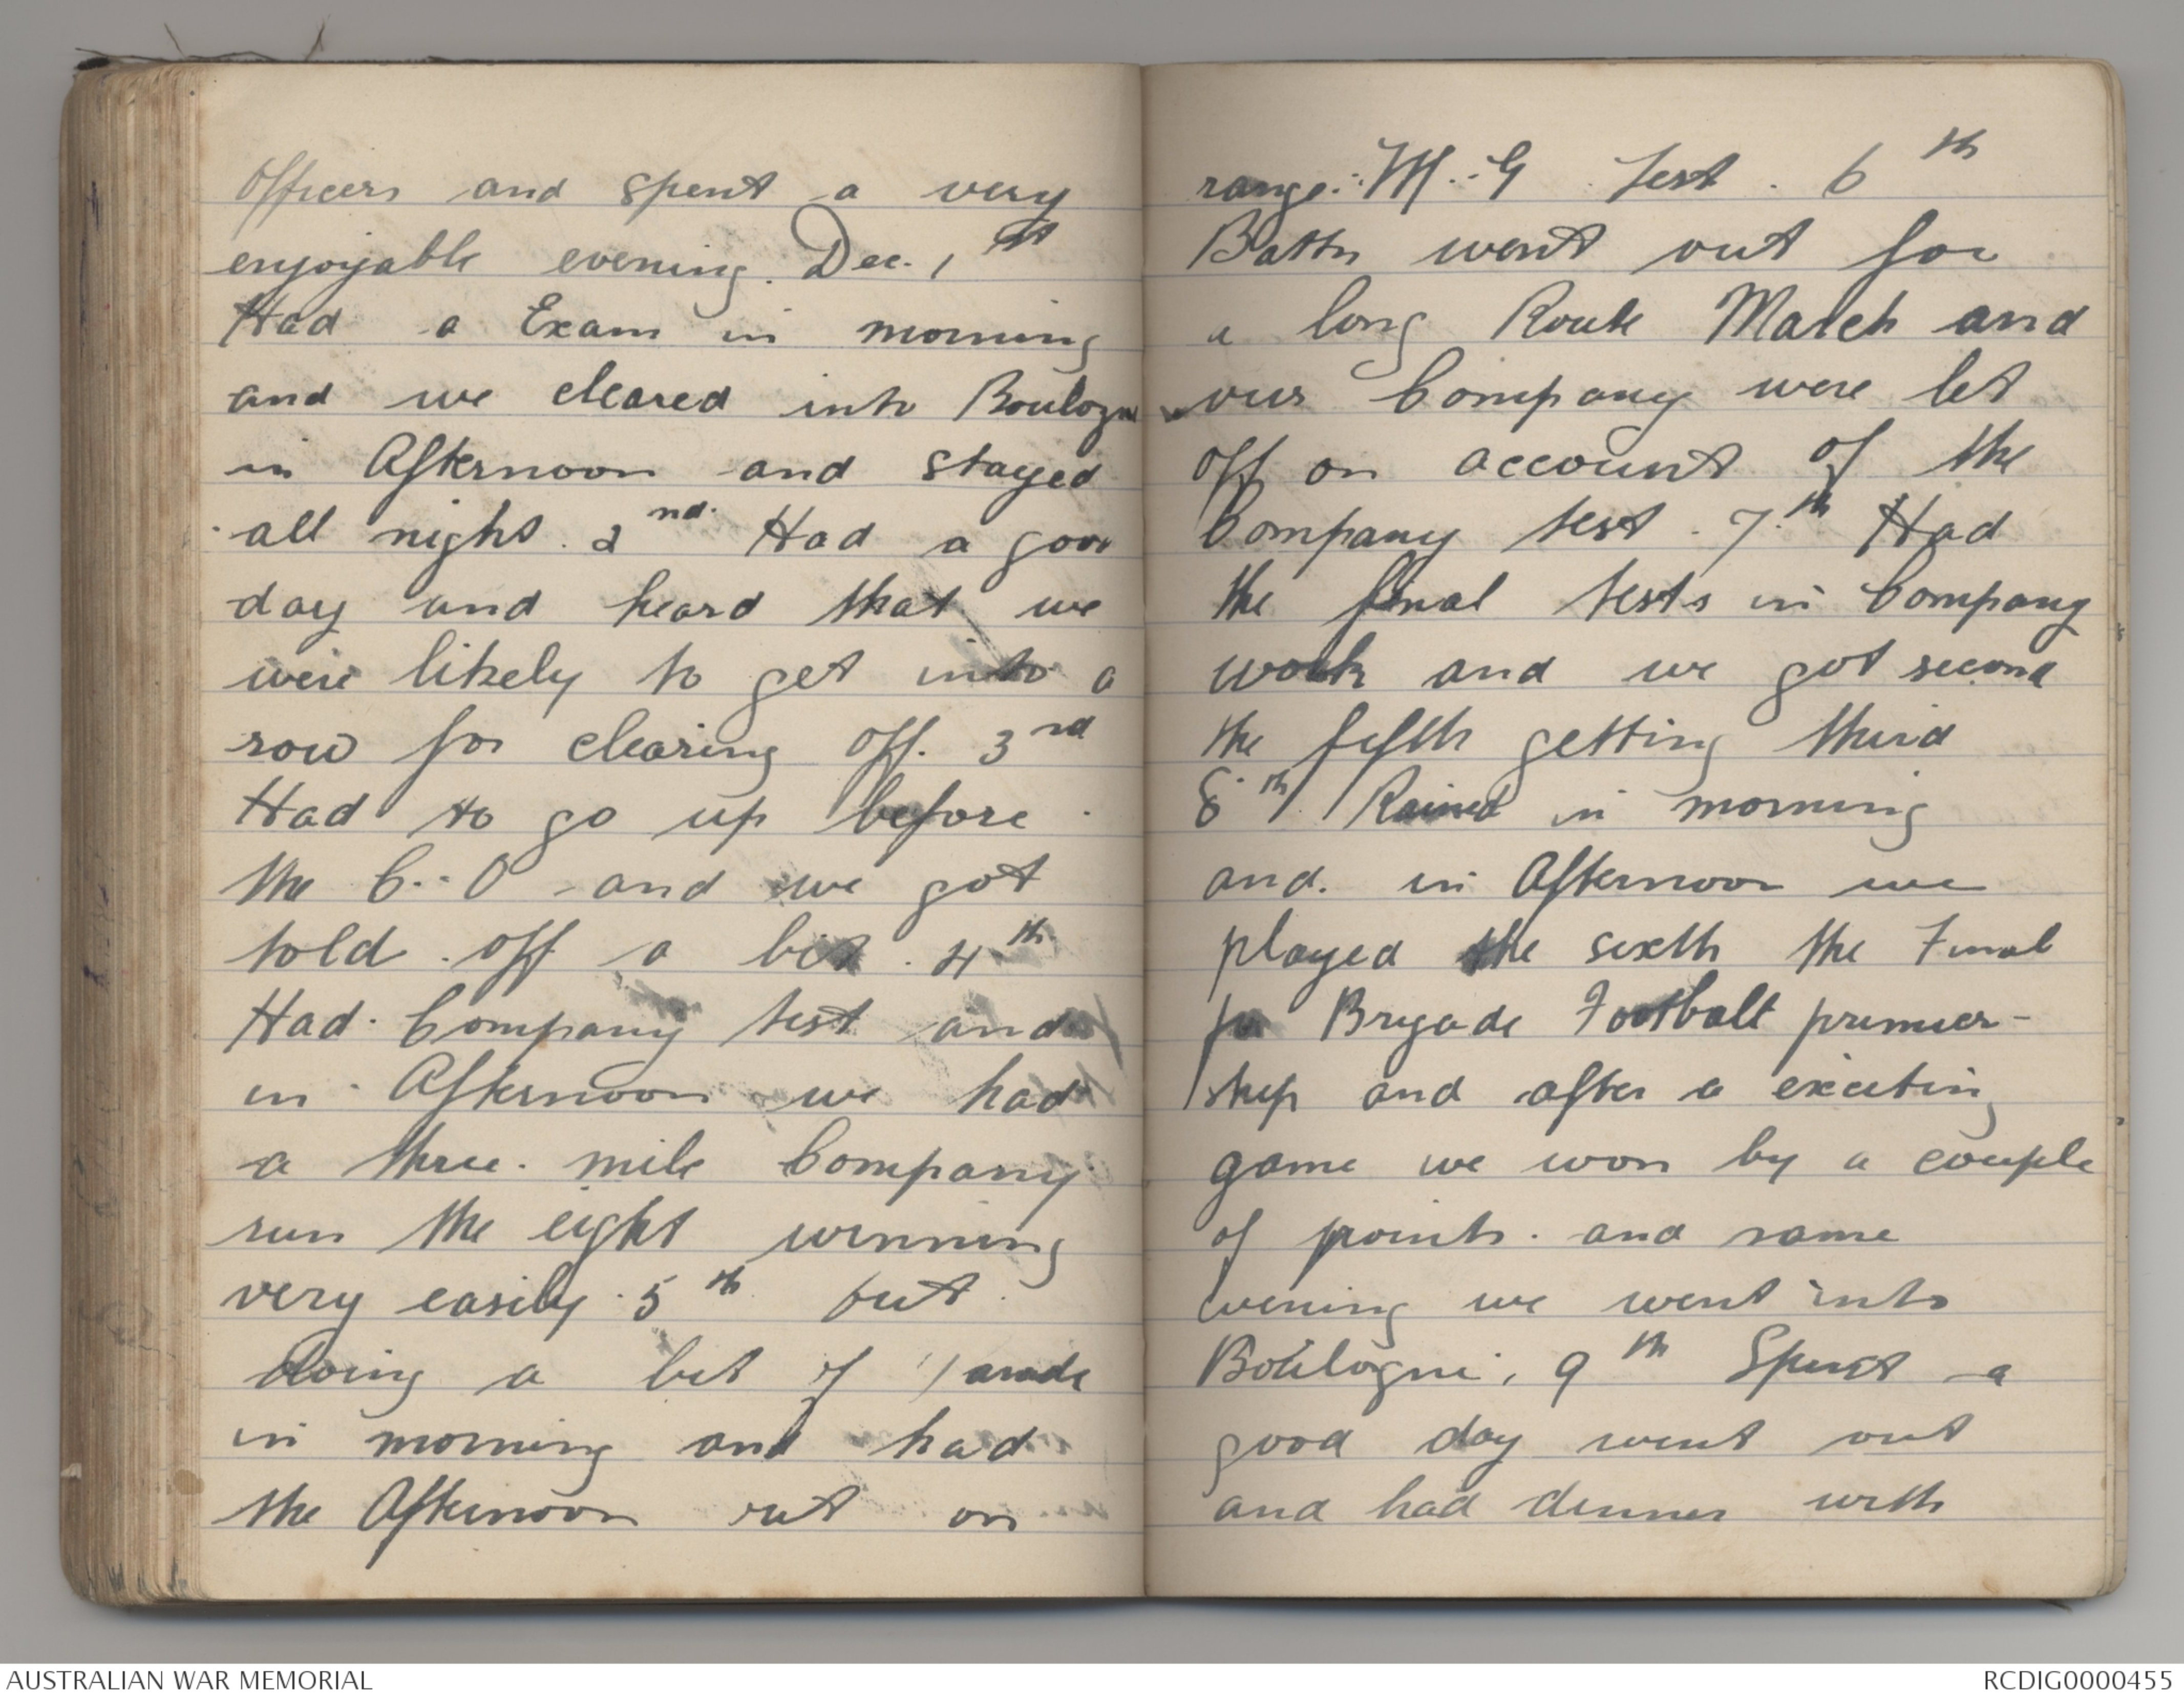 Officers and spent a very
enjoyable evening. Dec. 1st
Had a Exam in morning
and we cleared into Boulogne
in Afternoon and stayed
all night. 2nd. Had a good
day and heard that we
were likely to get into a
row for clearing off. 3rd
Had to go up before
the C..O and we got
told off a bit. 4th
Had Company test and
in Afternoon we had
a three mile Company
run the eight winning
very easily. 5th Out
doing a bit of Parade
in morning and had
the Afternoon out on
range. M..G Test. 6th
Battn went out for
a long Route March and
our Company were let
off on account of the
Company test. 7th Had
the final tests in Company
work and we got second
the fifth getting third
8th. Rained in morning
and. in Afternoon we
played the sixth the Final
for Brigade Football premier-
ship and after a exciting
game we won by a couple
of points. and same
evening we went into
Boulogne, 9th Spent a
good day went out
and had dinner with
AUSTRALIAN WAR MEMORIAL
RCDIG0000455